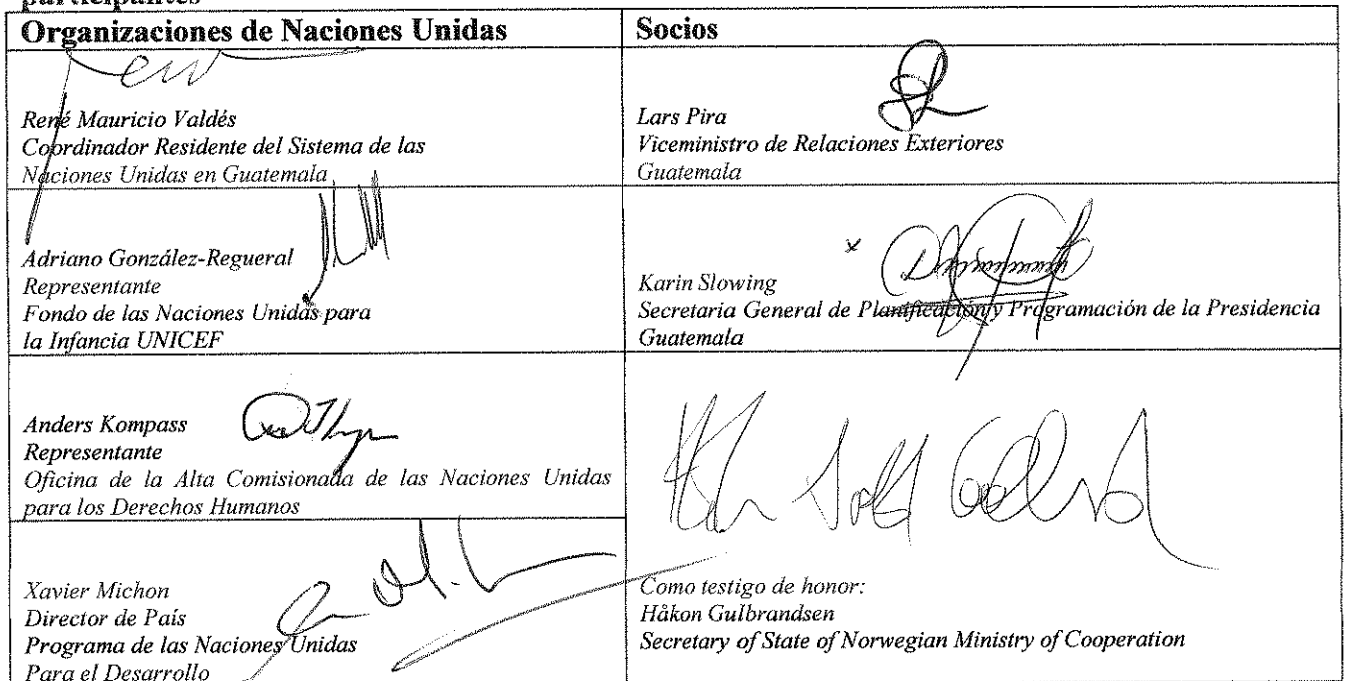 participantes
Organizaciones de Naciones Unidas
Socios
René Mauricio Valdés
Coordinador Residente del Sistema de las
Naciones Unidas en Guatemala
Lars Pira
Viceministro de Relaciones Exteriores
Guatemala
Adriano González-Regueral
Representante
Fondo de las Naciones Unidas para
la Infancia UNICEF
x
Karin Slowing
Secretaria General de Planificación y Programación de la Presidencia
Guatemala
Anders Kompass
Representante
Oficina de la Alta Comisionada de las Naciones Unidas
para los Derechos Humanos
Xavier Michon
Director de País
Programa de las Naciones Unidas
Para el Desarrollo
Como testigo de honor:
Håkon Gulbrandsen
Secretary of State of Norwegian Ministry of Cooperation